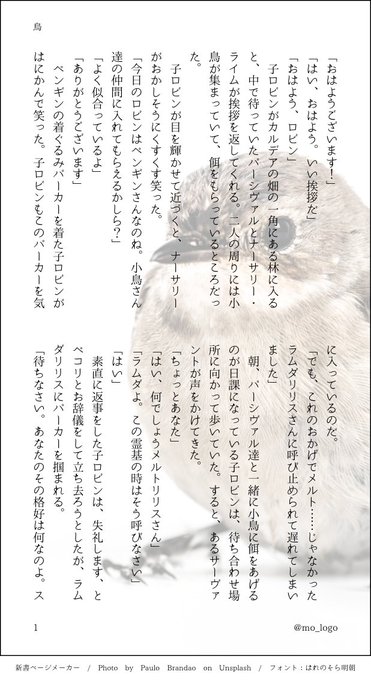 鳥
「おはようございます！」
「はい、おはよう。いい挨拶だ」
「おはよう、ロビン」
　子ロビンがカルデアの畑の一角にある林に入る
と、中で待っていたパーシヴァルとナーサリー・
ライムが挨拶を返してくれる。二人の周りには小
鳥が集まっていて、餌をもらっているところだっ
た。
　子ロビンが目を輝かせて近づくと、ナーサリー
がおかしそうにくすくす笑った。
「今日のロビンはペンギンさんなのね。小鳥さん
達の仲間に入れてもらえるかしら？」
「よく似合っているよ」
「ありがとうございます」
　ペンギンの着ぐるみパーカーを着た子ロビンが
はにかんで笑った。子ロビンもこのパーカーを気
に入っているのだ。
「でも、これのおかげでメルト……じゃなかった
ラムダリリスさんに呼び止められて遅れてしまい
ました」
　朝、パーシヴァル達と一緒に小鳥に餌をあげる
のが日課になっている子ロビンは、待ち合わせ場
所に向かって歩いていた。すると、あるサーヴァ
ントが声をかけてきた。
「ちょっとあなた」
「はい、何でしょうメルトリリスさん」
「ラムダよ。この霊基の時はそう呼びなさい」
「はい」
　素直に返事をした子ロビンは、失礼します、と
ペコリとお辞儀をして立ち去ろうとしたが、ラム
ダリリスにパーカーを掴まれる。
「待ちなさい。あなたのその格好は何なのよ。ス
1
@mo_logo
新書ページメーカー / Photo by Paulo Brandao on Unsplash / フォント：はれのそら明朝